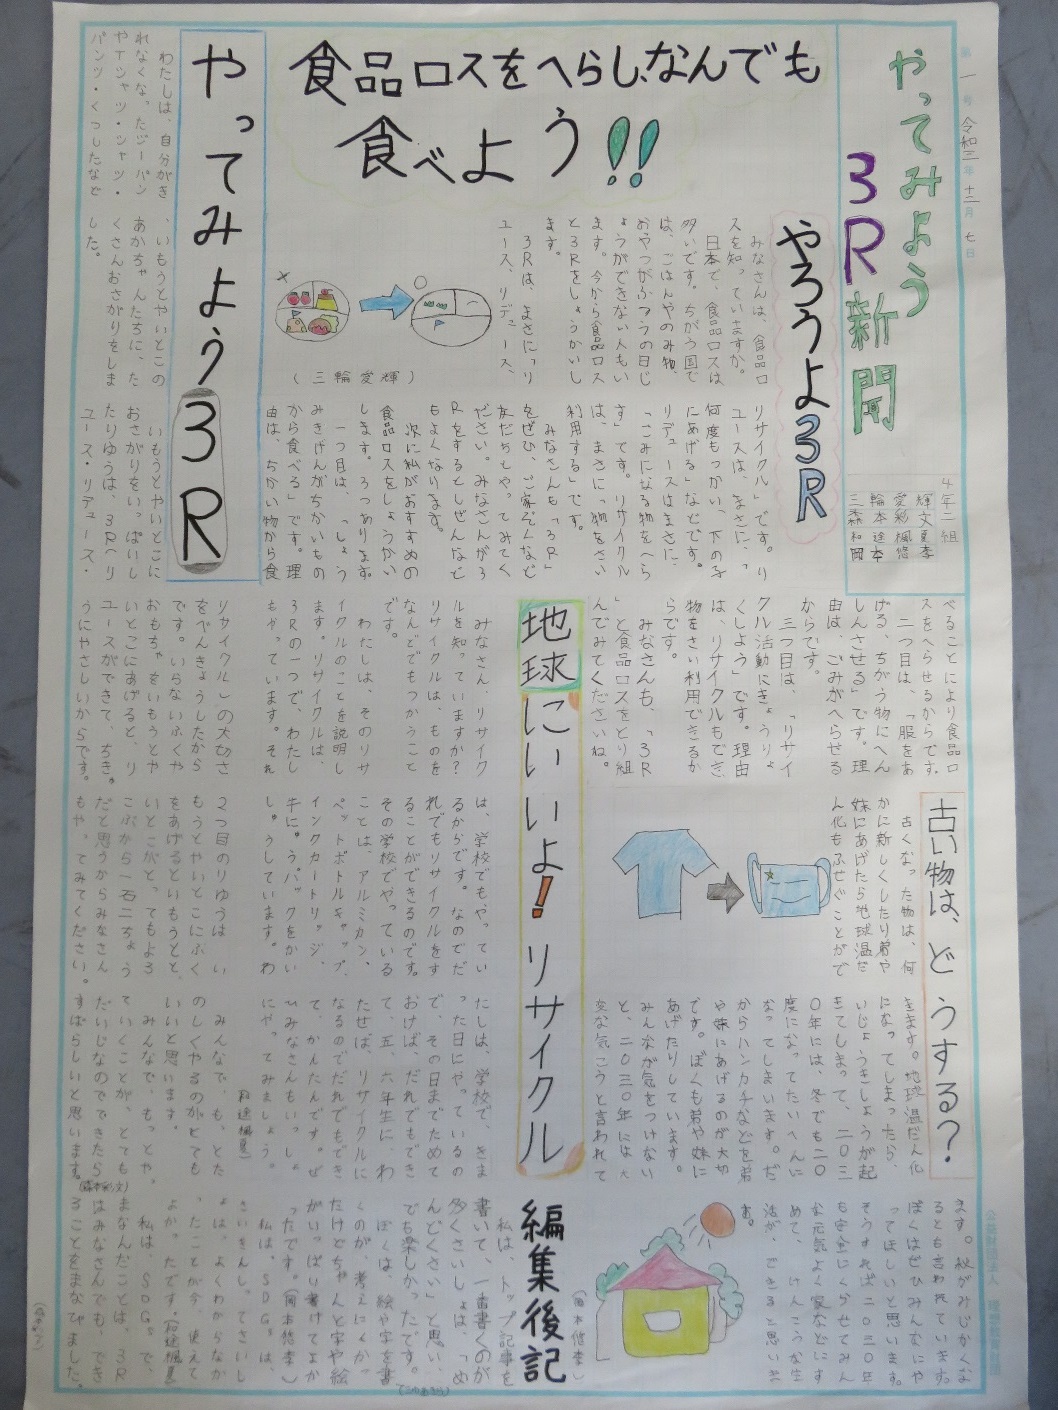 第一号 令和三年十二月七日
やってみよう
3R新聞
4年二組
食品ロスをへらし、なんでも
食べよう!!
やろうよ3R
みなさんは、食品ロ
スを知っていますか。
日本で、食品ロスは
多いです。ちがう国で
は、ごはんやのみ物、
おやつがふつうの日じ
ょうができない人もい
ます。今から食品ロス
と3Rをしょうかいし
ます。
3Rは、まさに「リ
ユース、リデュース、
(三輪愛輝)
リサイクル」です。リ
ユースは、まさに、「
何度もつかい、下の子
にあげる」などです。
リデュースはまさに、
「ごみになる物をへら
す」です。リサイクル
は、まさに「物をさい
利用する」です。
みなさんも「3R」
をぜひ、ご家ぞくなど
友だちとやってみてく
ださい。みなさんが3
Rをするとしぜんなど
もよくなります。
次に私がおすすめの
食品ロスをしょうかい
します。3つあります。
一つ目は、「しょう
みきげんがちかいもの
から食べる」です。理
由は、ちかい物から食
べることにより食品ロ
スをへらせるからです。
二つ目は、「服をあ
げる、ちがう物にへん
しんさせる」です。理
由は、ごみがへらせる
からです。
三つ目は、「リサイ
クル活動にきょうりょ
くしよう」です。理由
は、リサイクルもでき、
物をさい利用できるか
らです。
みなさんも、「3R
」と食品ロスをとり組
んでみてくださいね。
やってみよう3R
わたしは、自分がき
れなくなったジーパン
やTシャツ・シャツ・
パンツ・くつしたなど
、いもうとやいとこの
あかちゃんたちに、た
くさんおさがりをしま
した。
いもうとやいとこに
おさがりをいっぱいし
たりゆうは、3R「リ
ユース・リデュース・
リサイクル」の大切さ
をべんきょうしたから
です。いらないふくや
おもちゃをいもうとや
いとこにあげると、リ
ユースができて、ちき
ゅうにやさしいからです。
2つ目のりゆうは い
もうとやいとこにふく
をあげるといもうとと、
いとこがとってもよろ
こぶから一石二ちょう
だと思うからみなさん
もやってみてください。
みんなでも、とた
のしくやるのがとても
いいと思います。
みんなで、もっとや、
ていくことが、とても
だいじなのでできたら
すばらしいと思います。
地球にいいよ!リサイクル
みなさん、リサイク
ルを知っていますか?
リサイクルは、ものを
なんどでもつかうこと
です。
わたしは、そのリサ
イクルのことを説明し
ます。リサイクルは、
3Rの一つで、わたし
もやっています。それ
は、学校でもやってい
るからです。なのでだ
れでもリサイクルをす
ることができるのです。
その学校でやっている
ことは、アルミカン、
ペットボトルキャップ、
インクカートリッジ、
牛にゅうパックをかい
しゅうしています。わ
たしは、学校で、きま
った日にやっているの
で、その日までためて
おけば、だれでもでき
て、五、六年生に、わ
たせば、リサイクルに
なるのでだれでもでき
て、かんたんです。ぜ
ひみなさんもいっしょ
にやってみましょう。
古い物は、どうする?
古くなった物は、何
かに新しくしたり弟や
妹にあげたら地球温だ
ん化もふせぐことがで
きます。地球温だん化
になってしまったら
いじょうきしょうが起
きてしまって、二〇三
〇年には、冬でも二〇
度になってたいへんに
なってしまいます。だ
からハンカチなどを弟
や妹にあげるのが大切
です。ぼくも弟や妹に
あげたりしています。
みんなが気をつけない
と、二〇三〇年には大
変な気こうと言われて
ます。秋がみじかくな
るとも言われています。
ぼくはぜひみんなにや
ってほしいと思います。
そうすれば二〇三〇年
も安全にくらせてみん
な元気よく家などにす
めて、けんこうな生
活が、できると思いま
す。
(岡本悠孝)
編集後記
私は、トップ記事を
書いて、一番書くのが
多くさいしょは、「め
んどくさい」と思い、
でも楽しかったです。
ぼくは、絵や字を書
くのが、考えにくか
ったけどちゃんと字や絵
がいっぱい書けてよか
ったです。(岡本悠孝)
私は、SDGsは、
さいきんしってさいし
ょは、よくわからなか
ったことが今、使えて
よかったです。
私は、SDGsで、
まなんだことは、3R
はみなさんでも、でき
ることをまなびました。